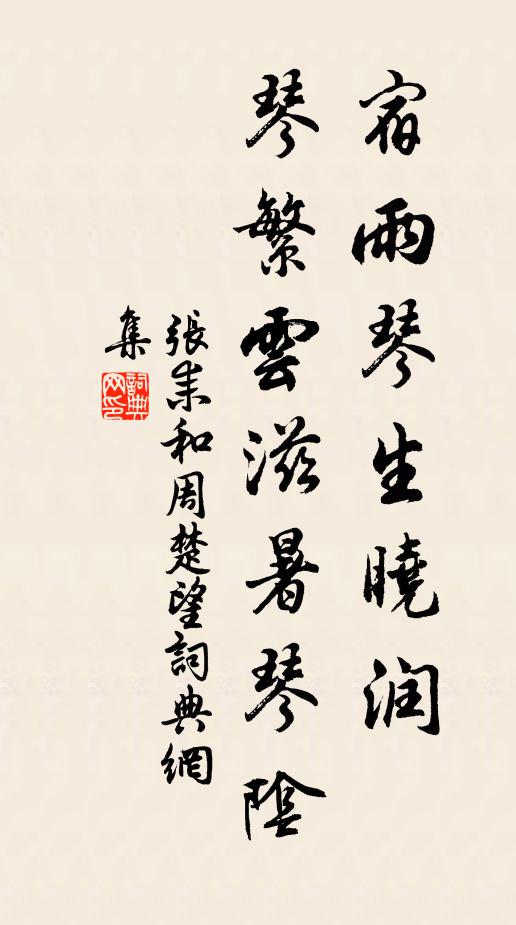 宿雨琴生曉潤
琴繁雲滋暑琴陰
張耒和周楚望詞典網
集
詞典
网印